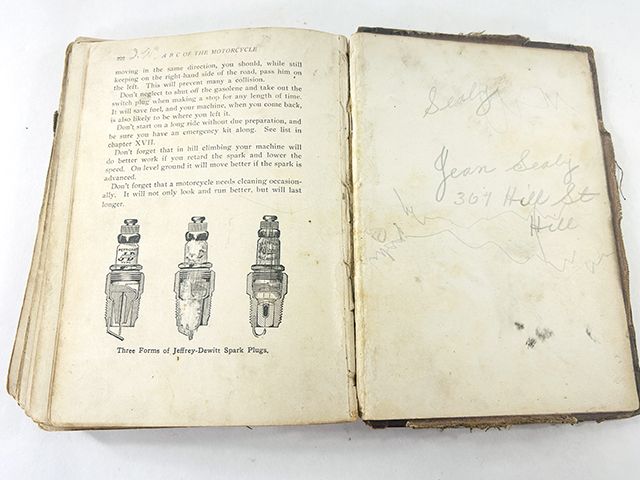 A B C OF THE MOTORCYCLE
moving in the same direction, you should, while still
keeping on the right-hand side of the road, pass him on
the left. This will prevent many a collision.
Don't neglect to shut off the gasolene and take out the
switch plug when making a stop for any length of time.
It will save fuel, and your machine, when you come back,
is also likely to be where you left it.
Don't start on a long ride without due preparation, and
be sure you have an emergency kit along. See list in
chapter XVII.
Don't forget that in hill climbing your machine will
do better work if you retard the spark and lower the
speed. On level ground it will move better if the spark is
advanced.
Don't forget that a motorcycle needs cleaning occasion-
ally. It will not only look and run better, but will last
longer.
Three Forms of Jeffrey-Dewitt Spark Plugs.
Sealy
Jean Sealy
307 Hill St
Hill